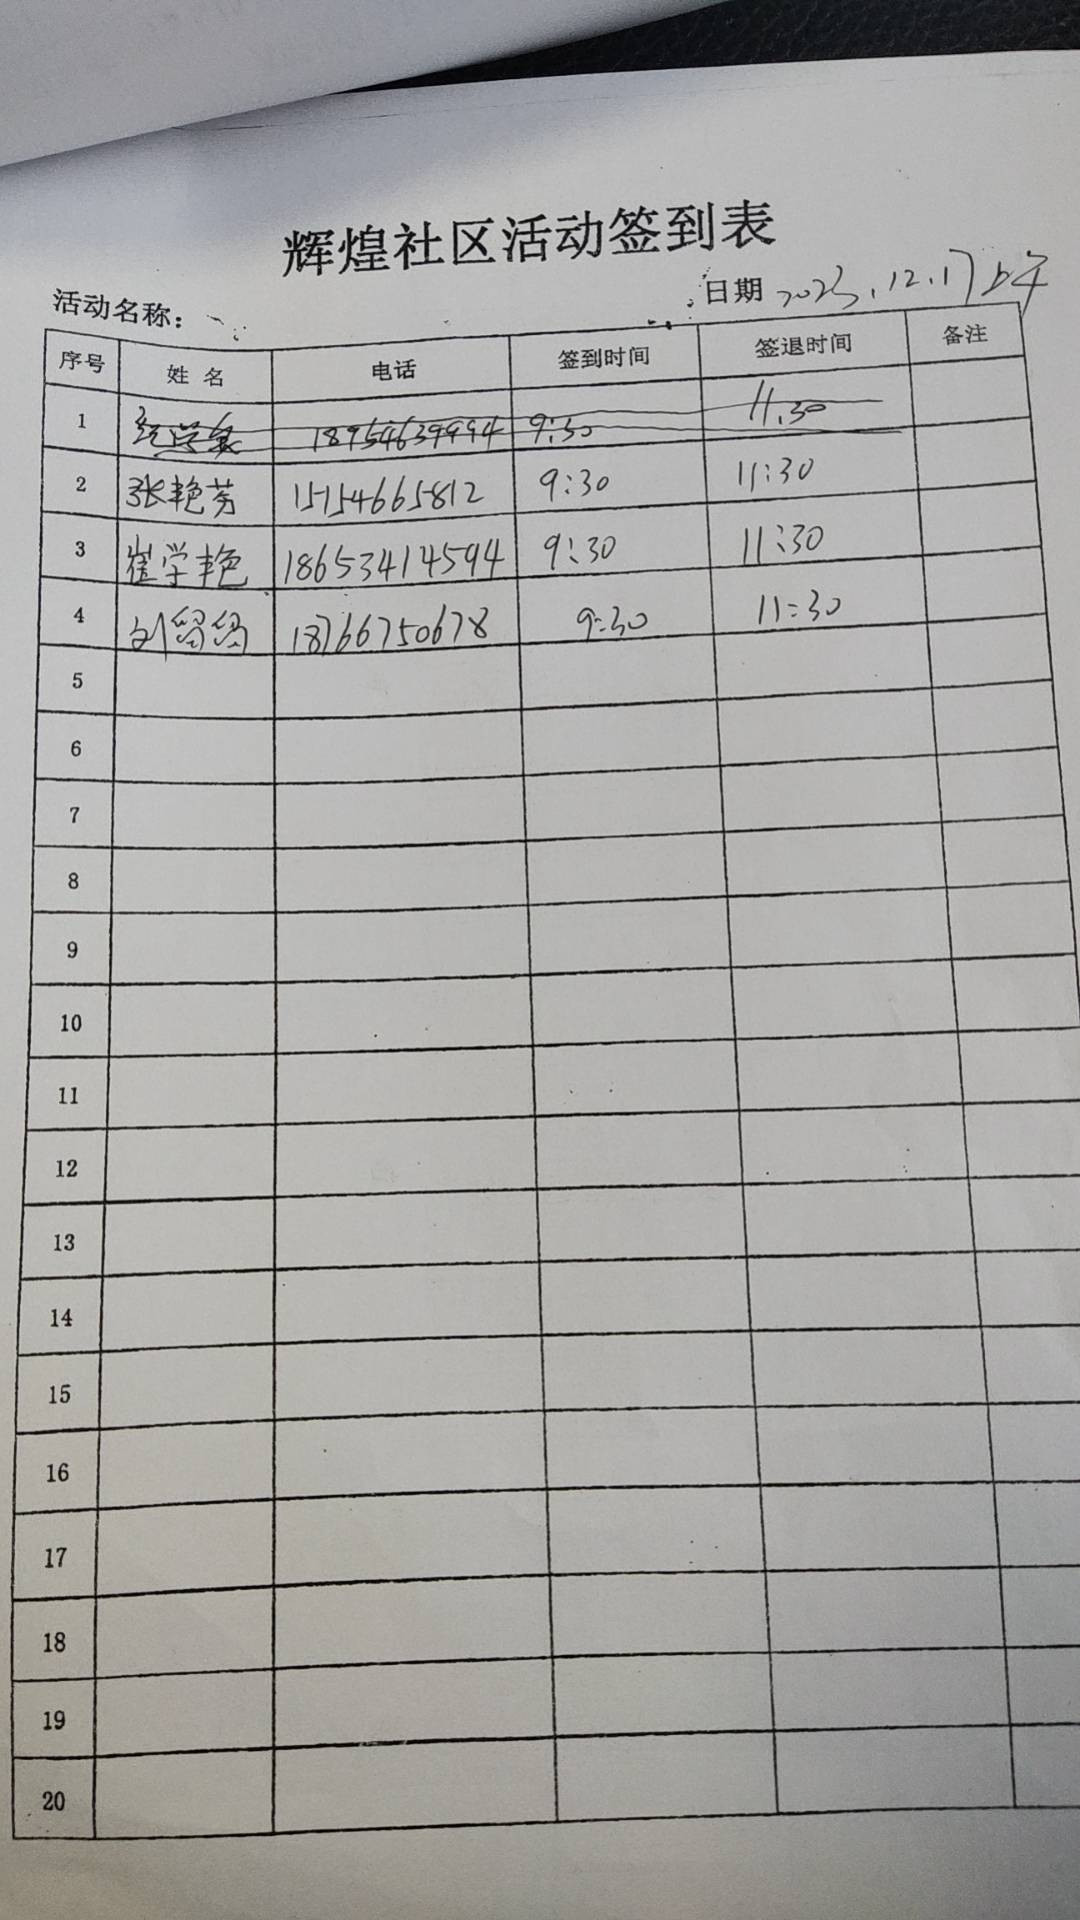 辉煌社区活动签到表
活动名称： 日期 2023.12.17上午
序号 姓名 电话 签到时间 签退时间 备注
1 18954639994 9:30 11.30
2 张艳芳 15154665812 9:30 11:30
3 崔学艳 18653414594 9:30 11:30
4 刘 18766750678 9:30 11:30
5
6
7
8
9
10
11
12
13
14
15
16
17
18
19
20